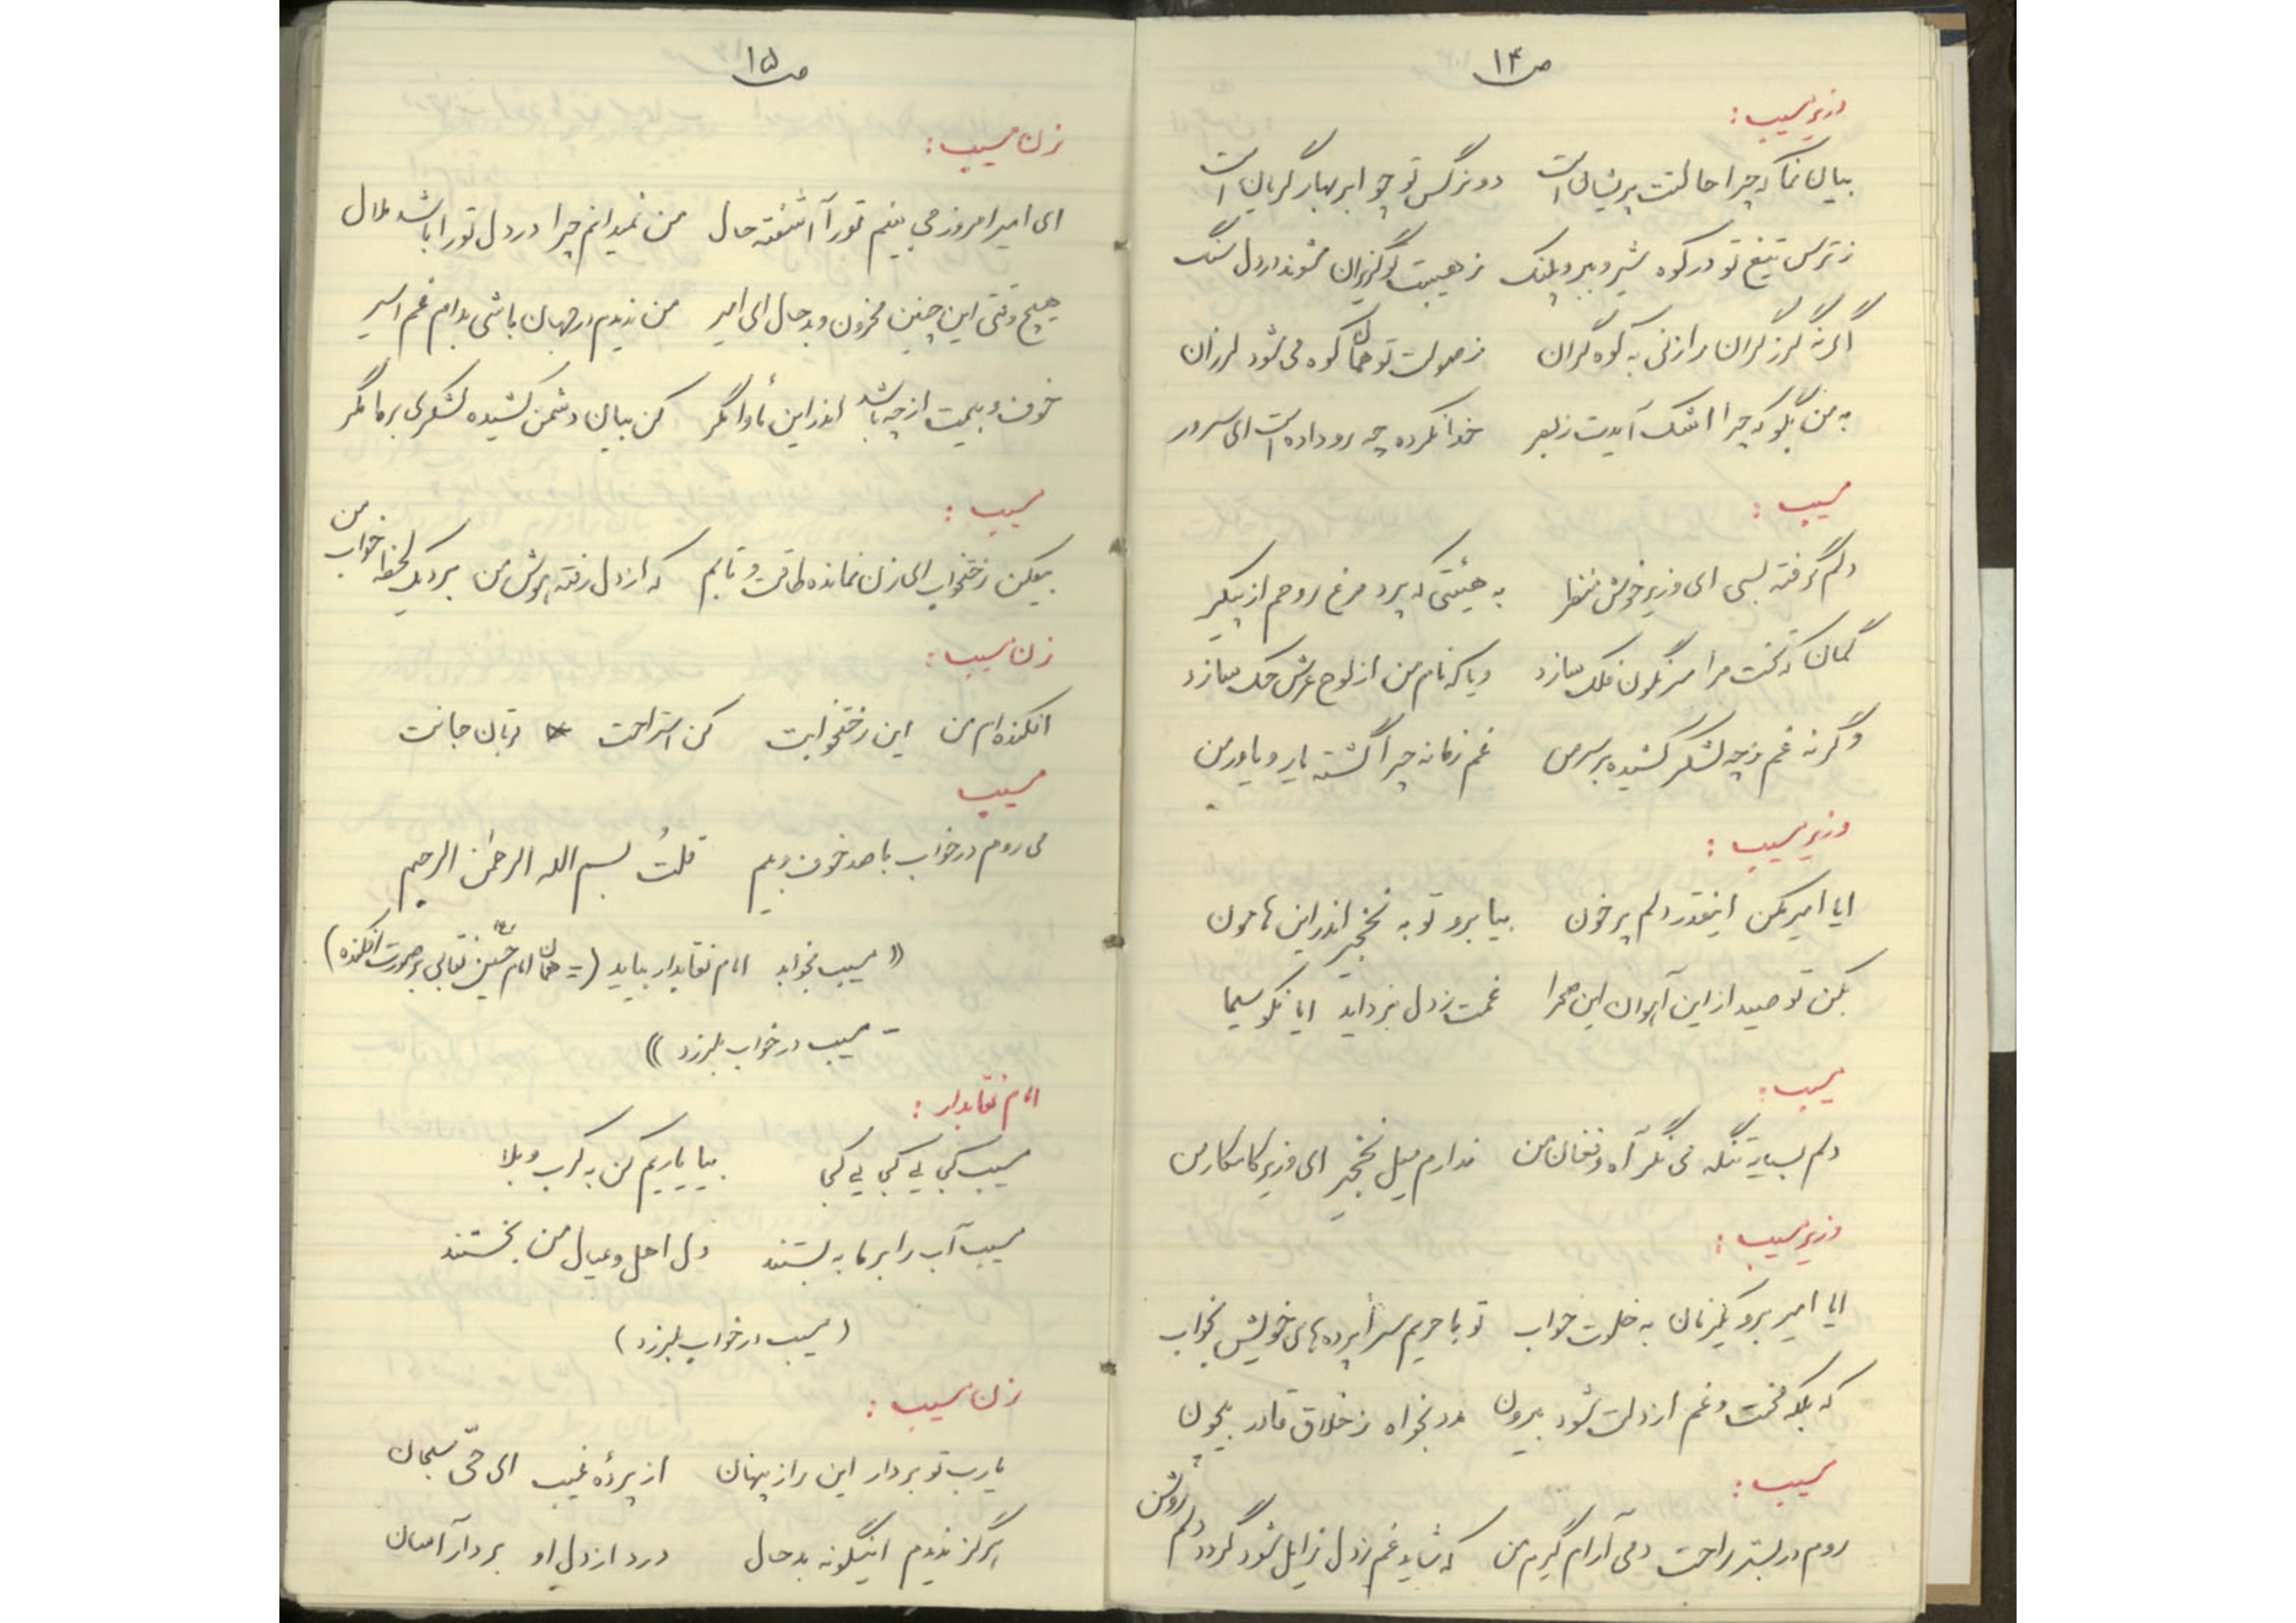 ص ۱۴
وزیر مسیب :
بیان نما که چرا حالتت پریشان است دو نرگس تو چو ابر بهار گریان است
ز ترس تیغ تو در کوه شیر و ببر و پلنگ ز هیبت گریزان شوند در دل سنگ
اگر نه گرز گران را زنی به کوه گران ز صولت تو همان کوه می شود لرزان
به من بگو که چرا اشک آیدت ز بصر خدا نکرده چه رو داده است ای سرور
مسیب :
دلم گرفته بسی ای وزیر خوش منظر به هیئتی که پرد مرغ روحم از پیکر
گمان که تخت مرا سرنگون فلک سازد و یا که نام من از لوح عرش حک سازد
و گر نه غم ز چه لشکر کشیده بر سر من غم زمانه چرا گشته یار و یاور من
وزیر مسیب :
ایا امیر مکن اینقدر دلم پر خون بیا برو تو به نخجیر اندر این هامون
بکن تو صید از این آهوان این صحرا غمت ز دل بزداید ایا نکو سیما
مسیب :
دلم بسیار تنگه نمی نگر آه و فغان من ندارم میل نخجیر ای وزیر کامکار من
وزیر مسیب :
ایا امیر برو یکزمان به خلوت خواب تو با حریم سراپرده های خویش بخواب
که بلکه محنت و غم از دلت شود بیرون مدد بخواه ز خلاق قادر بیچون
مسیب :
روم در بستر راحت دمی آرام گیرم من که شاید غم ز دل زایل شود گردد دلم روشن
ص ۱۵
زن مسیب :
ای امیر امروز می بینم تو را آشفته حال من نمیدانم چرا در دل تو را باشد ملال
هیچ وقتی این چنین محزون و بد حال ای امیر من ندیدم در جهان باشی بدام غم اسیر
خوف و بیمت از چه باشد اندر این مأوا مگر کن بیان دشمن کشیده لشکری بر ما مگر
مسیب :
بیفکن رختخواب ای زن نمانده طاقت و تابم که از دل رفته هوش من برد یک لحظه خواب من
زن مسیب :
افکنده ام من این رختخوابت کن استراحت قربان جانت
مسیب
می روم در خواب با صد خوف و بیم قلتُ بسم الله الرحمٰن الرحیم
(( مسیب بخوابد امام نقابدار بیاید ( = همان امام حسین ع نقابی بر صورت افکنده )
- مسیب در خواب بلرزد ))
امام نقابدار :
مسیب کجایی کجایی کجا بیا یاریم کن به کرب و بلا
مسیب آب را بر ما به بستند دل اهل و عیال من بخستند
( مسیب در خواب بلرزد )
زن مسیب :
یارب تو بردار این راز پنهان از پردهٔ غیب ای حیّ سبحان
هرگز ندیدم اینگونه بد حال درد از دل او بردار آسان